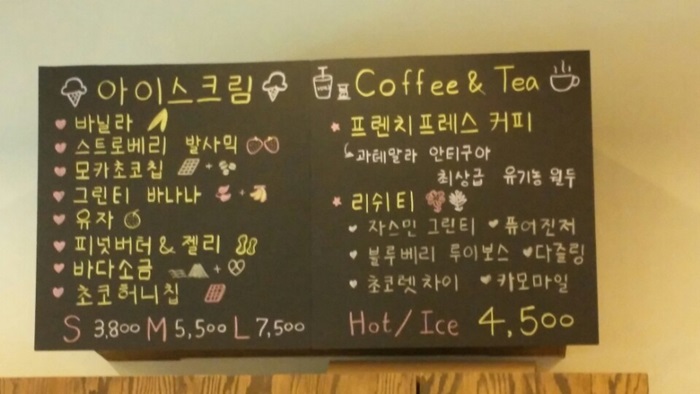 아이스크림
바닐라
스트로베리 발사믹
모카초코칩
그린티 바나나
유자
피넛버터 & 젤리
바다소금
초코허니칩
S 3,800 M 5,500 L 7,500
Coffee & Tea
프렌치프레스 커피
과테말라 안티구아
최상급 유기농 원두
리쉬티
자스민 그린티 퓨어진저
블루베리 루이보스 다즐링
초코렛차이 카모마일
Hot / Ice 4,500